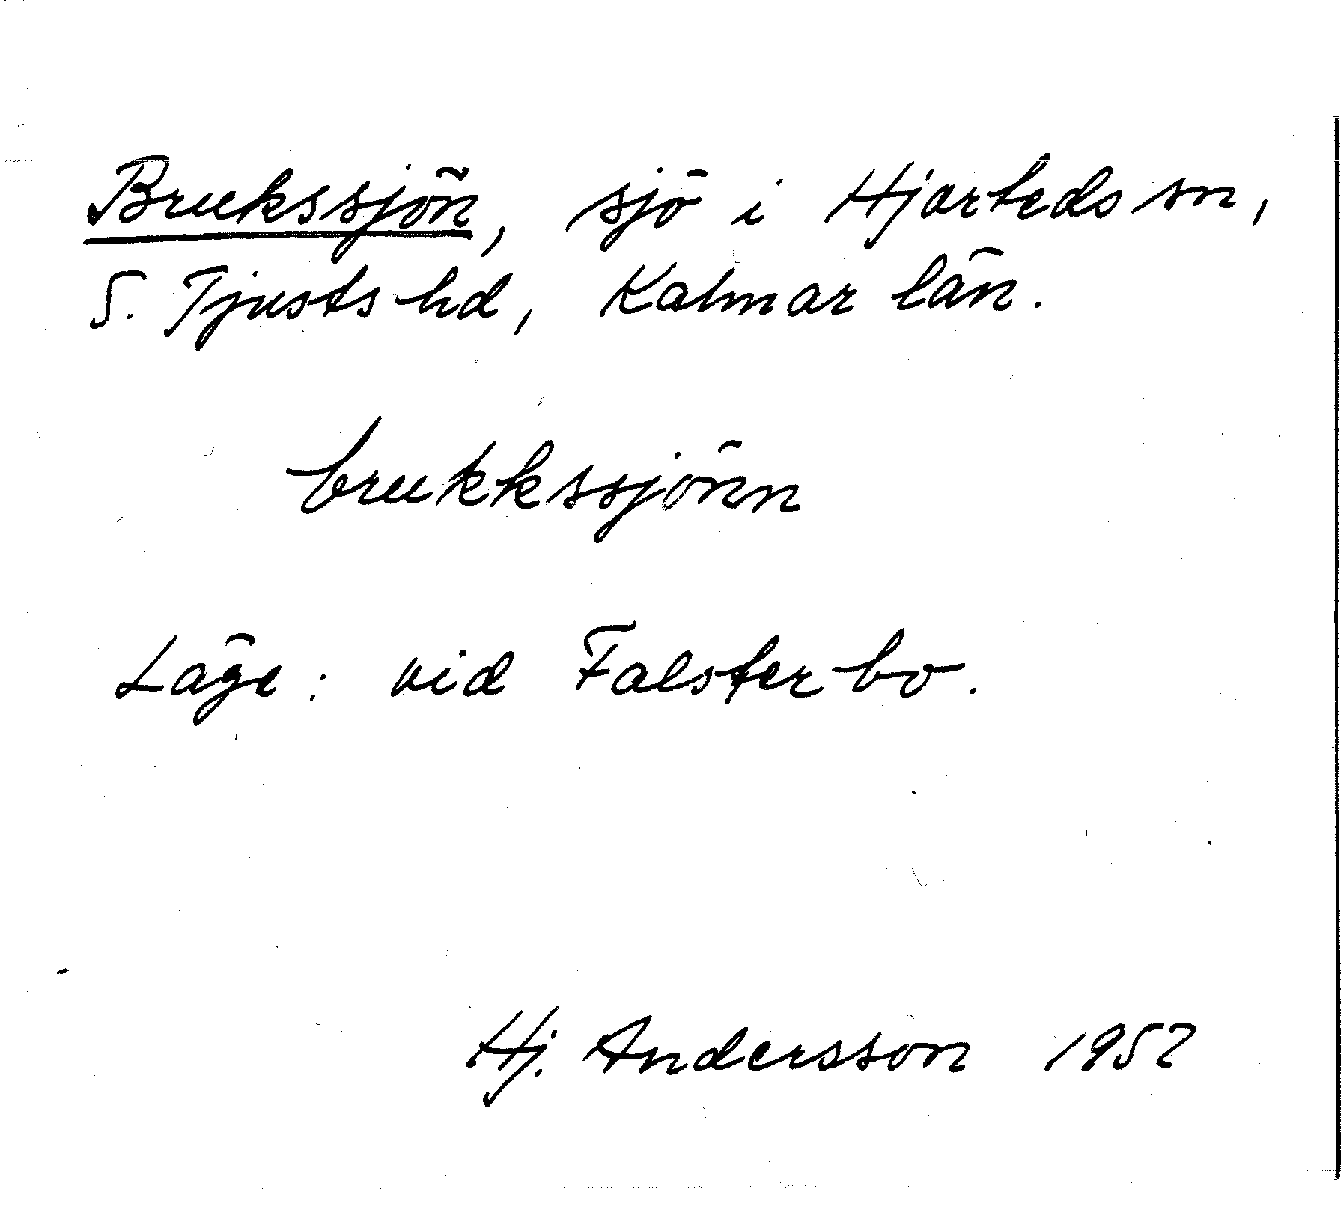 Brukssjön, sjö i Hjorteds sn,
S. Tjusts hd, Kalmar län.
brukkssjönn
Läge: vid Falsterbo.
Hj. Andersson 1957